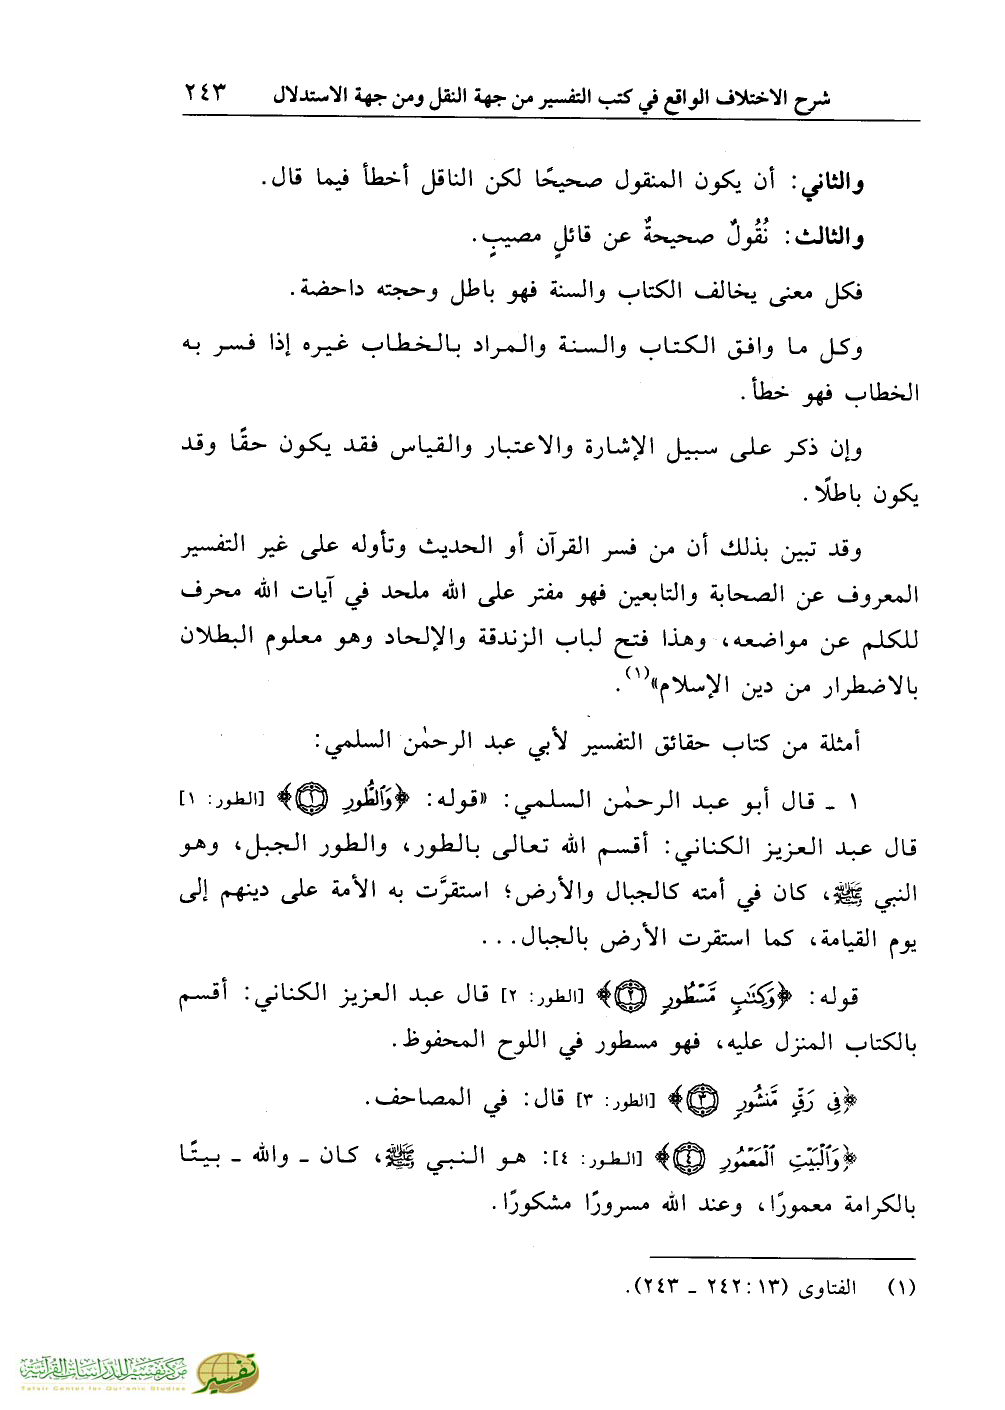 شرح الاختلاف الواقع في كتب التفسير من جهة النقل ومن جهة الاستدلال ٢٤٣
والثاني: أن يكون المنقول صحيحًا لكن الناقل أخطأ فيما قال.
والثالث: نُقُولٌ صحيحةٌ عن قائلٍ مصيبٍ.
فكل معنى يخالف الكتاب والسنة فهو باطل وحجته داحضة.
وكل ما وافق الكتاب والسنة والمراد بالخطاب غيره إذا فسر به
الخطاب فهو خطأ.
وإن ذكر على سبيل الإشارة والاعتبار والقياس فقد يكون حقًا وقد
يكون باطلًا.
وقد تبين بذلك أن من فسر القرآن أو الحديث وتأوله على غير التفسير
المعروف عن الصحابة والتابعين فهو مفتر على الله ملحد في آيات الله محرف
للكلم عن مواضعه، وهذا فتح لباب الزندقة والإلحاد وهو معلوم البطلان
بالاضطرار من دين الإسلام»(١).
أمثلة من كتاب حقائق التفسير لأبي عبد الرحمٰن السلمي:
١ ـ قال أبو عبد الرحمٰن السلمي: «قوله: ﴿وَٱلطُّورِ ۝١﴾ [الطور: ١]
قال عبد العزيز الكناني: أقسم الله تعالى بالطور، والطور الجبل، وهو
النبي ﷺ، كان في أمته كالجبال والأرض؛ استقرَّت به الأمة على دينهم إلى
يوم القيامة، كما استقرت الأرض بالجبال...
قوله: ﴿وَكِتَٰبٍ مَّسْطُورٍ ۝٢﴾ [الطور: ٢] قال عبد العزيز الكناني: أقسم
بالكتاب المنزل عليه، فهو مسطور في اللوح المحفوظ.
﴿فِى رَقٍّ مَّنشُورٍ ۝٣﴾ [الطور: ٣] قال: في المصاحف.
﴿وَٱلْبَيْتِ ٱلْمَعْمُورِ ۝٤﴾ [الطور: ٤]: هو النبي ﷺ، كان ـ والله ـ بيتًا
بالكرامة معمورًا، وعند الله مسرورًا مشكورًا.
(١) الفتاوى (١٣: ٢٤٢ ـ ٢٤٣).
مركز تفسير للدراسات القرآنية
Tafsir Center for Qur'anic Studies
تفسير